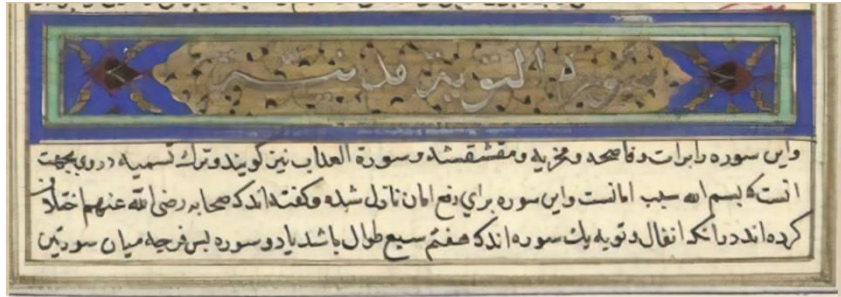 سورة التوبة مدنية
واین سوره را برات و فاضحه و مخزیه و مقشقشه و سورة العذاب نیز کویند و ترك تسمیه در وی بجهت
انست که بسم الله سبب امانست واین سوره برای رفع امان نازل شده و کفته‌اند که صحابه رضی الله عنهم اختلاف
کرده‌اند در انکه انفال و توبه یك سوره‌اند که هفتم سبع طوال باشد یا دو سوره بس فرجه میان سورتین